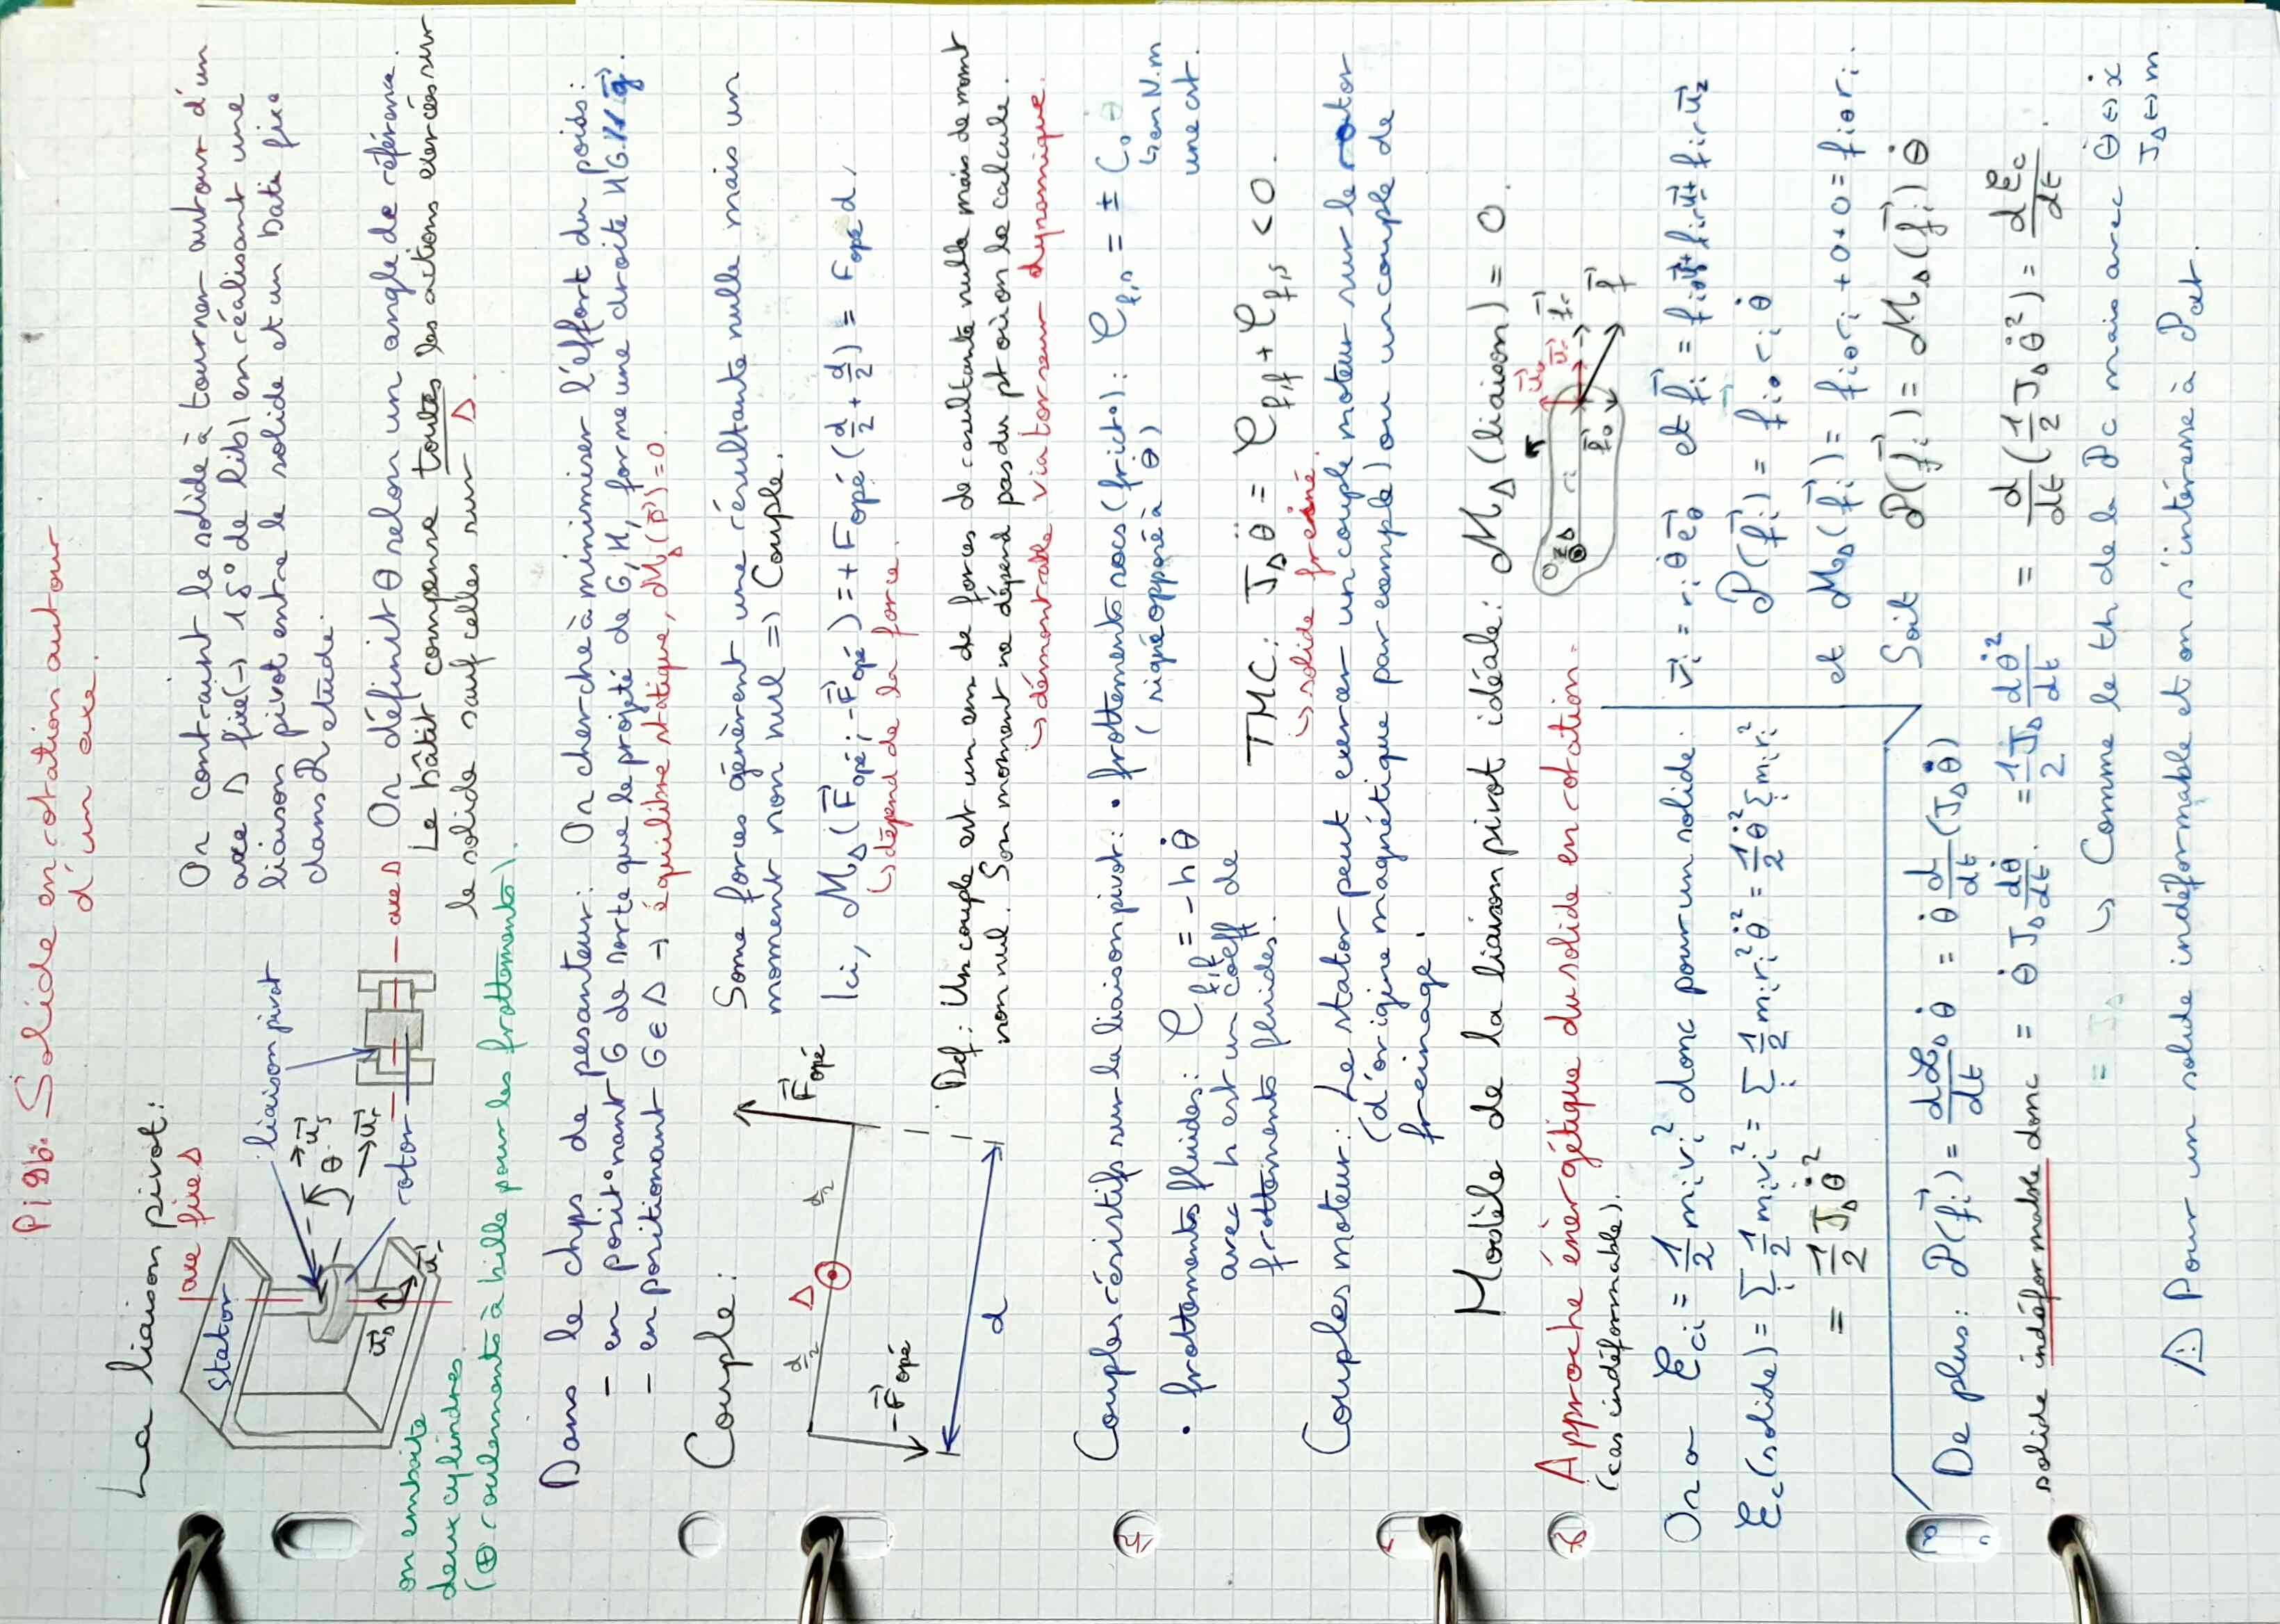 PI9b: Solide en rotation autour
d'un axe.
La liaison pivot:
axe fixe Δ
Stator
liaison pivot
rotor
axe Δ
θ
on emboite
deux cylindres.
(⊕ roulements à bille pour les frottements).
On contraint le solide à tourner autour d'un
axe Δ fixe (→ 1 d° de lib) en réalisant une
liaison pivot entre le solide et un bati fixe
dans R étude.
On définit θ selon un angle de référence.
Le bâtit compense toutes les actions exercées sur
le solide sauf celles sur Δ.
Dans le chps de pesanteur: On cherche à minimiser l'effort du poids:
- en posit°nant G de sorte que le projeté de G, H, forme une droite HG // g⃗.
- en positionant G ∈ Δ → équilibre statique, M_Δ(P⃗) = 0.
Couple:
Δ
d/2
d/2
F⃗opé
-F⃗opé
d
Some forces génèrent une résultante nulle mais un
moment non nul => Couple.
Ici, M_Δ(F⃗opé; -F⃗opé) = + Fopé (d/2 + d/2) = Fopé d.
↳ dépend de la force.
Def: Un couple est un em de forces de résultante nulle mais de momt
non nul. Son moment ne dépend pas du pt où on le calcule.
↳ démontrable via torseur dynamique.
Couples résistifs sur la liaison pivot:
• frottements socs (frict°): C_f,s = ± C₀
↳ en N.m
une cst.
(signe opposé à θ̇)
• frottements fluides: C_f,f = -h θ̇
avec h est un coeff de
frottements fluides.
TMC: J_Δ θ̈ = C_f,f + C_f,s < 0.
↳ solide freiné.
Couples moteur: Le stator peut exercer un couple moteur sur le rotor
(d'origine magnétique par exemple) ou un couple de
freinage.
Modèle de la liaison pivot idéale: M_Δ(liaison) = 0.
Approche énergétique du solide en rotation.
(cas indéformable).
On a Eci = 1/2 mi vi² donc pour un solide:
Ec(solide) = Σi 1/2 mi vi² = Σi 1/2 mi ri² θ̇² = 1/2 θ̇² Σi mi ri²
= 1/2 J_Δ θ̇²
v⃗i = ri θ̇ e⃗θ et f⃗i = fiθ u⃗θ + fir u⃗r + fiz u⃗z
P(f⃗i) = fiθ ri θ̇
et M_Δ(f⃗i) = fiθ ri + 0 + 0 = fiθ ri.
Soit P(f⃗i) = M_Δ(f⃗i) θ̇
De plus: P(f⃗i) = dL_Δ/dt θ̇ = θ̇ d/dt (J_Δ θ̇)
solide indéformable donc = θ̇ J_Δ dθ̇/dt = 1/2 J_Δ dθ̇²/dt = d/dt (1/2 J_Δ θ̇²) = dEc/dt.
↳ Comme le th de la Pc mais avec θ̇ ↔ ẋ
J_Δ ↔ m
⚠ Pour un solide indéformable et on s'intéresse à Pext.